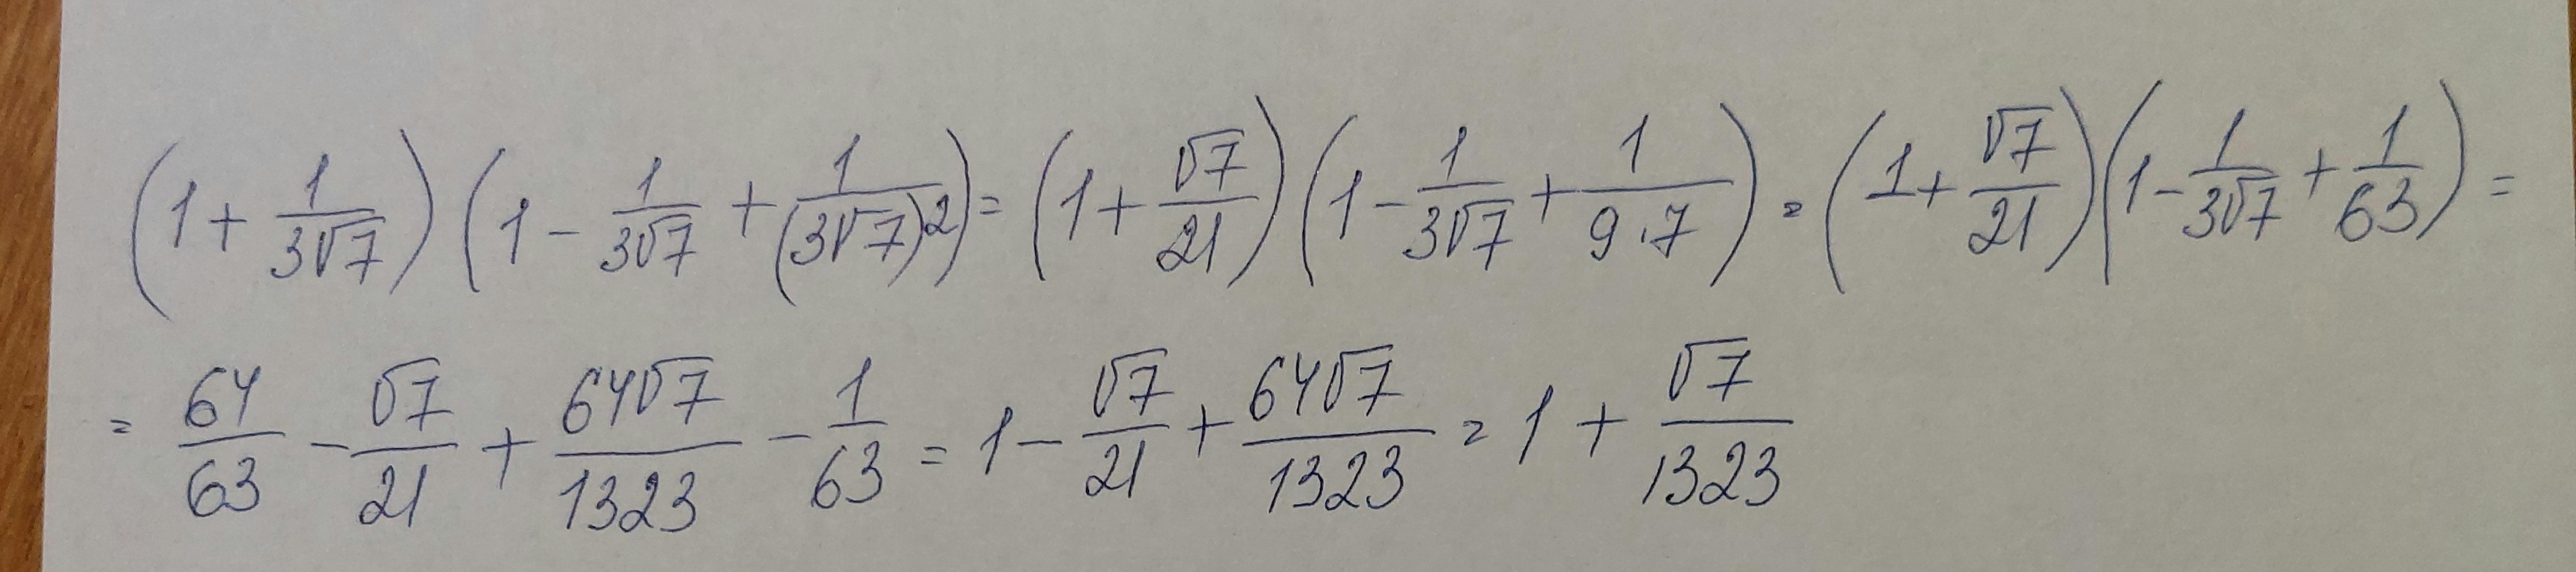 (1 + 1/(3√7)) (1 - 1/(3√7) + 1/(3√7)²) = (1 + √7/21) (1 - 1/(3√7) + 1/(9·7)) = (1 + √7/21) (1 - 1/(3√7) + 1/63) =
= 64/63 - √7/21 + 64√7/1323 - 1/63 = 1 - √7/21 + 64√7/1323 = 1 + √7/1323